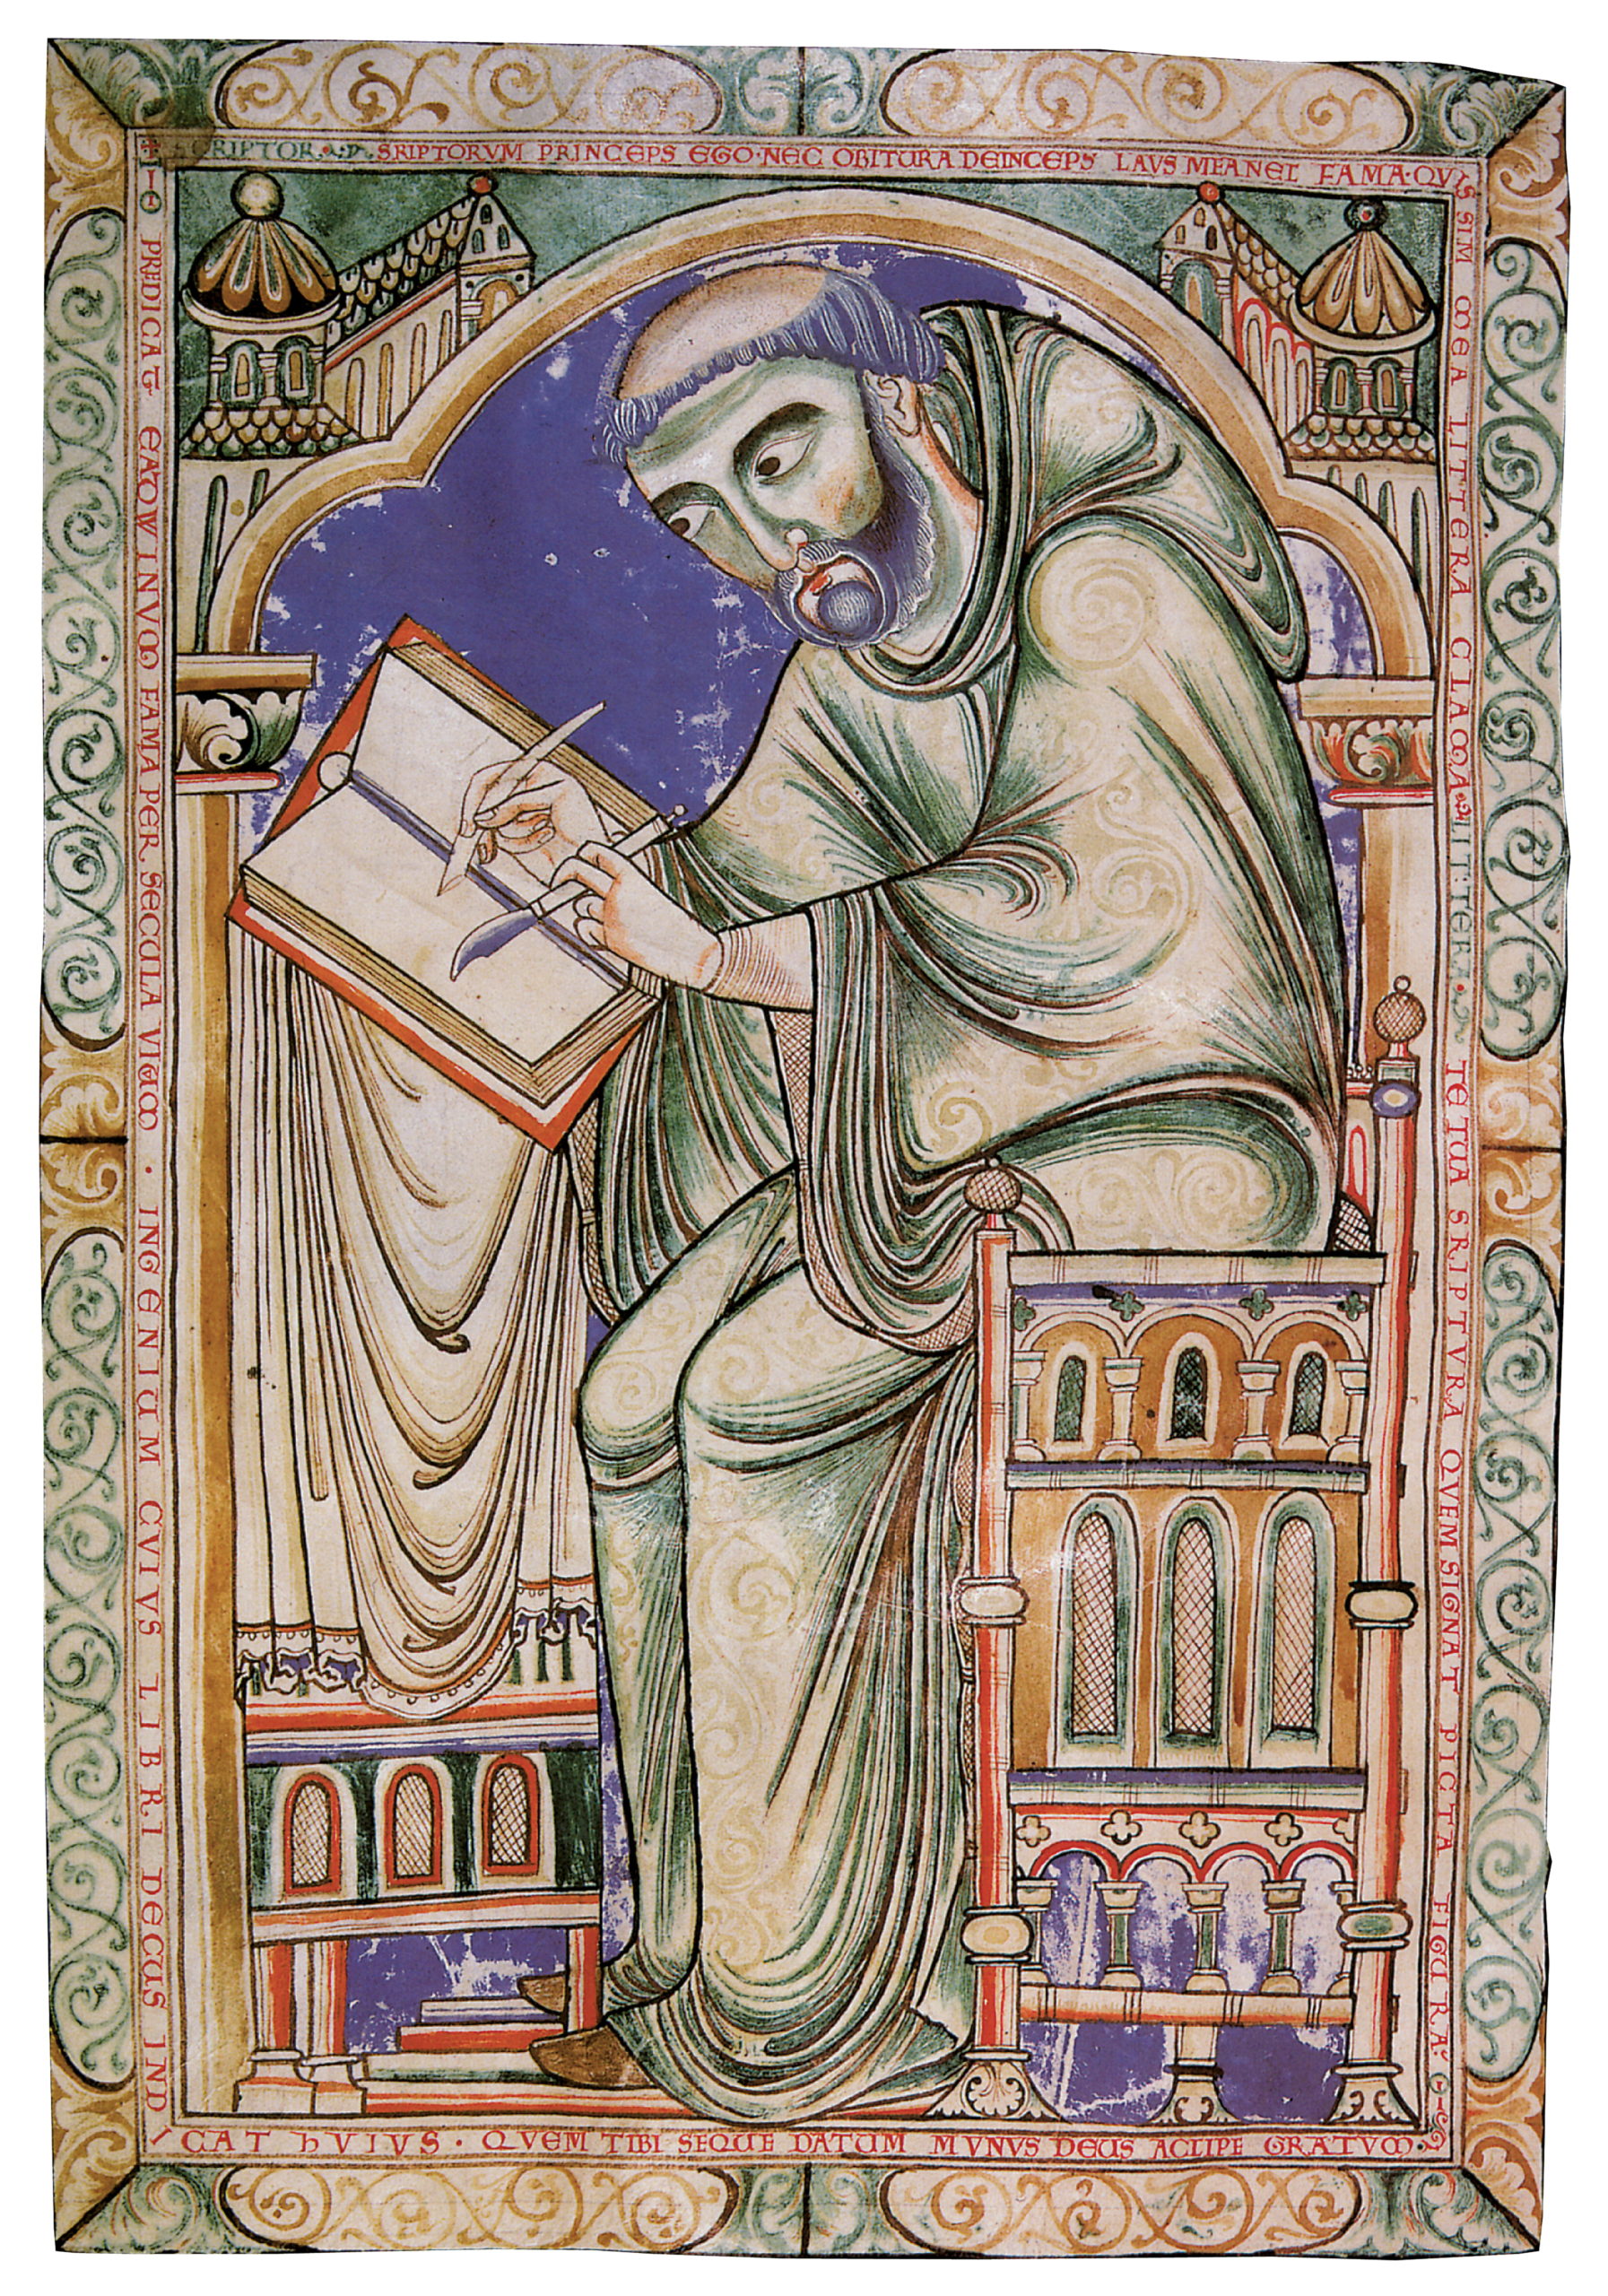 SCRIPTOR · SRIPTORVM PRINCEPS EGO · NEC OBITURA DEINCEPS LAVS MEA NEC FAMA · QV
IS SIM MEA LITTERA CLAMA · LITTERA · TE TUA SRIPTVRA QVEM SIGNAT PICTA FIGURA
PREDICAT EADWINVM FAMA PER SECULA VIVUM · INGENIUM CVIVS LIBRI DECUS IND
ICAT hVIVS · QVEM TIBI SEQUE DATUM MVNVS DEUS ACCIPE GRATVM ·